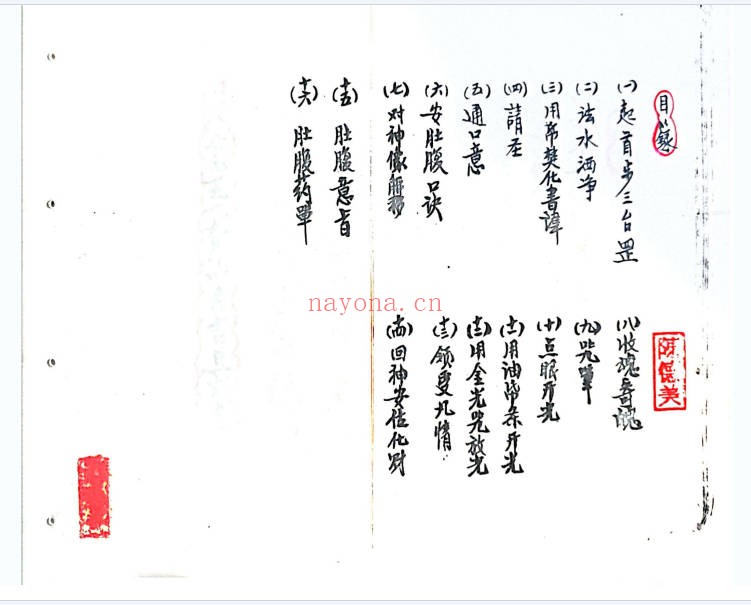 目录
(一)起首步三台罡
(二)法水洒净
(三)用帋焚化書諱
(四)請圣
(五)通口意
(六)安肚腹口诀
(七)对神像
(八)收魂
(九)咒
(十)点眼开光
(十一)用油 开光
(十二)用金光咒放光
(十三)领受凡情
(十四)回神安位化财
(十五)肚腹意旨
(十六)肚腹药單
nayona.cn